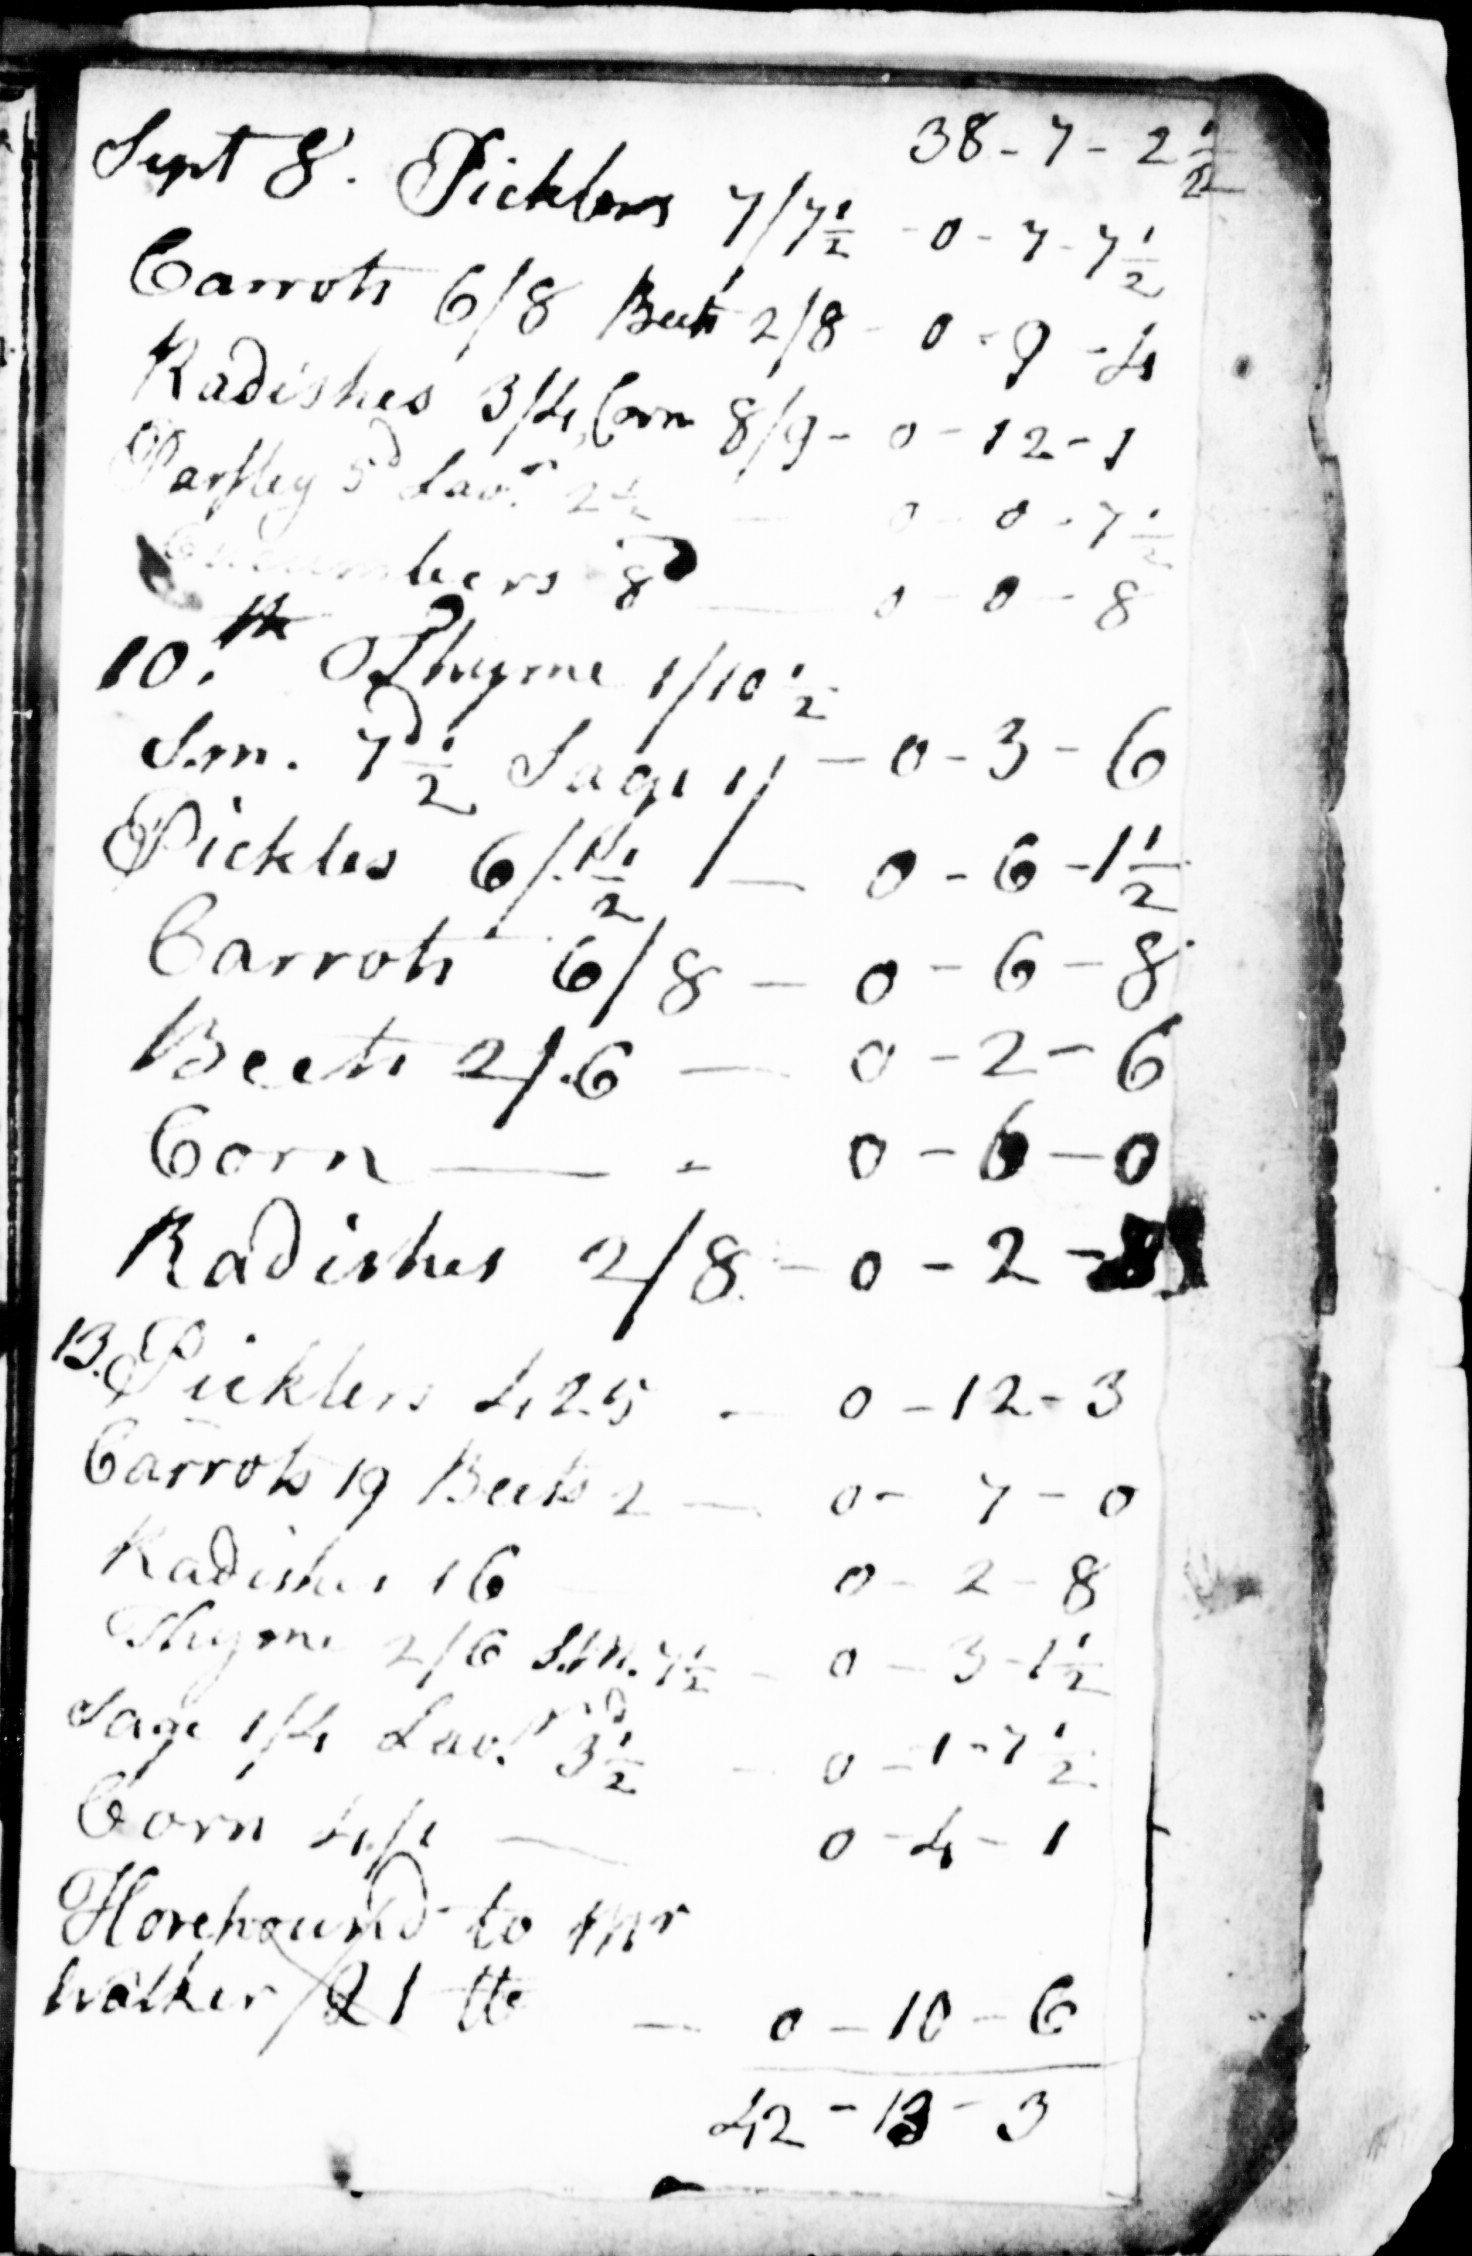 38-7-2½
Sept 8. Picklers 7/7½ -0-7-7½
Carrots 6/8 Beets 2/8 - 0-9-4
Radishes 3/4, Corn 8/9 - 0-12-1
Parsley 5d Lavr. 2½ — 0-0-7½
Cucumbers 8d — 0-0-8
10.th Thyme 1/10½
S.m. 7d½ Sage 1/ — 0-3-6
Pickles 6/.1½ — 0-6-1½
Carrots 6/8 — 0-6-8
Beets 2/.6 — 0-2-6
Corn — - 0-6-0
Radishes 2/8 - 0-2-8
13. Picklers 425 — 0-12-3
Carrots 19 Beets 2 — 0-7-0
Radishes 16 0-2-8
Thyme 2/6 S.m. 7½ - 0-3-1½
Sage 1/4 Lavr. 3d½ - 0-1-7½
Corn 4/1 — 0-4-1
Horehound to Mr
Walker 21 tt — 0-10-6
42-13-3